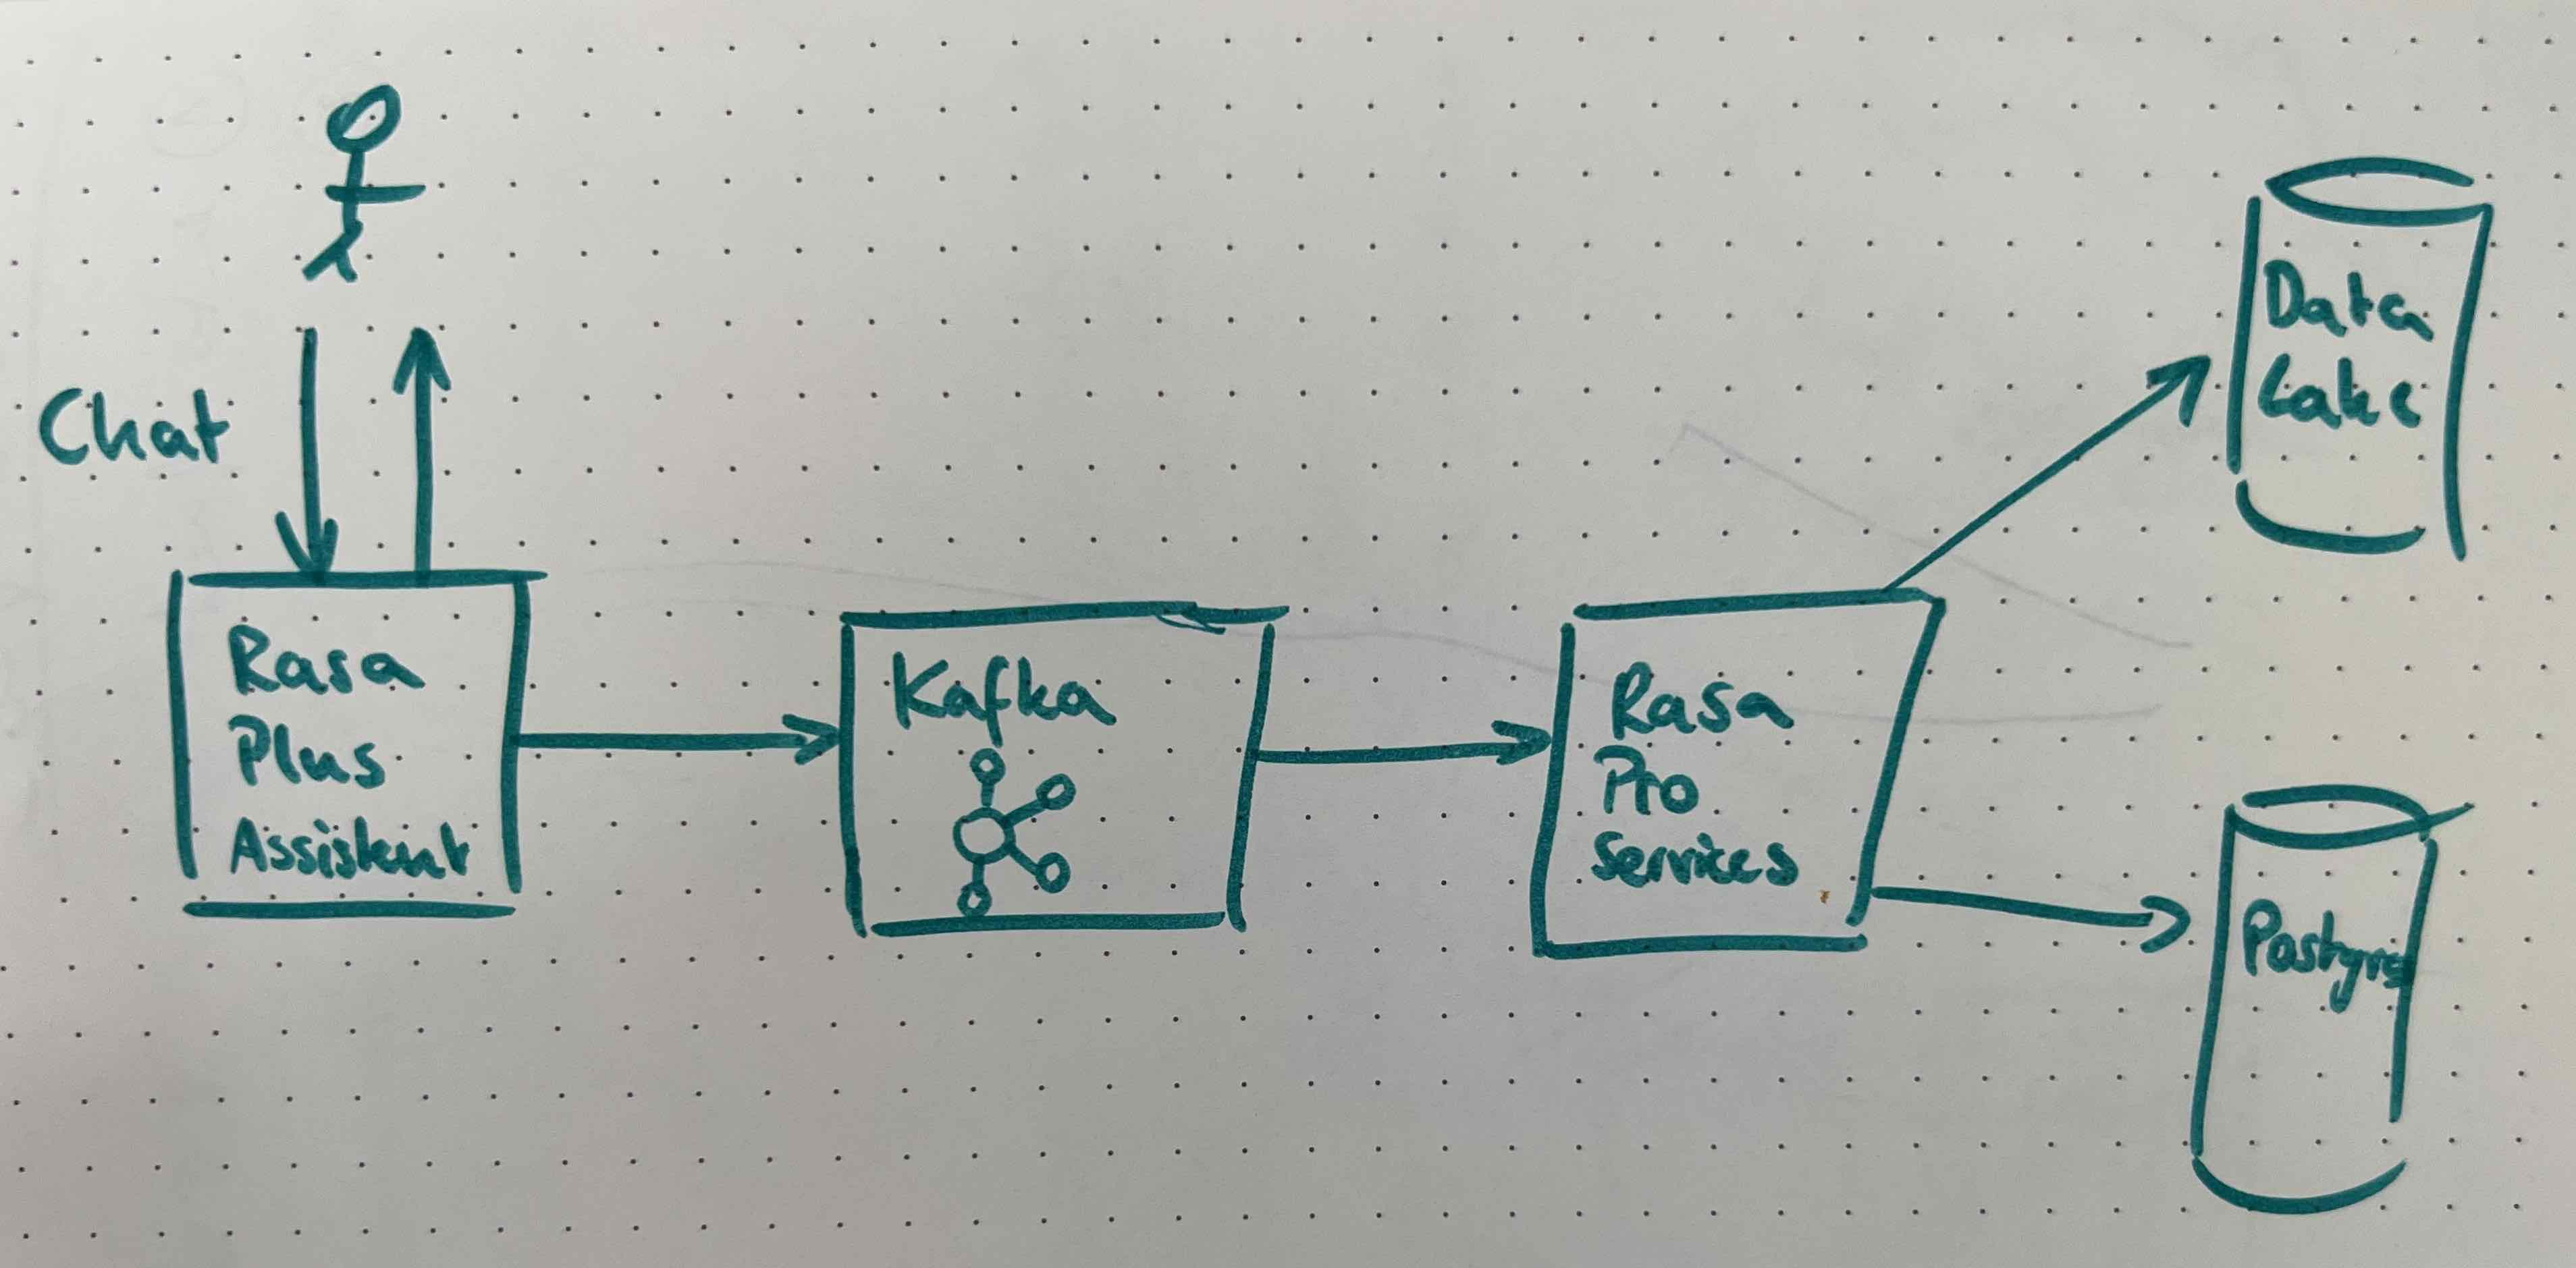 Chat
Rasa
Plus
Assistent
Kafka
Rasa
Pro
Services
Data
Lake
Postgres